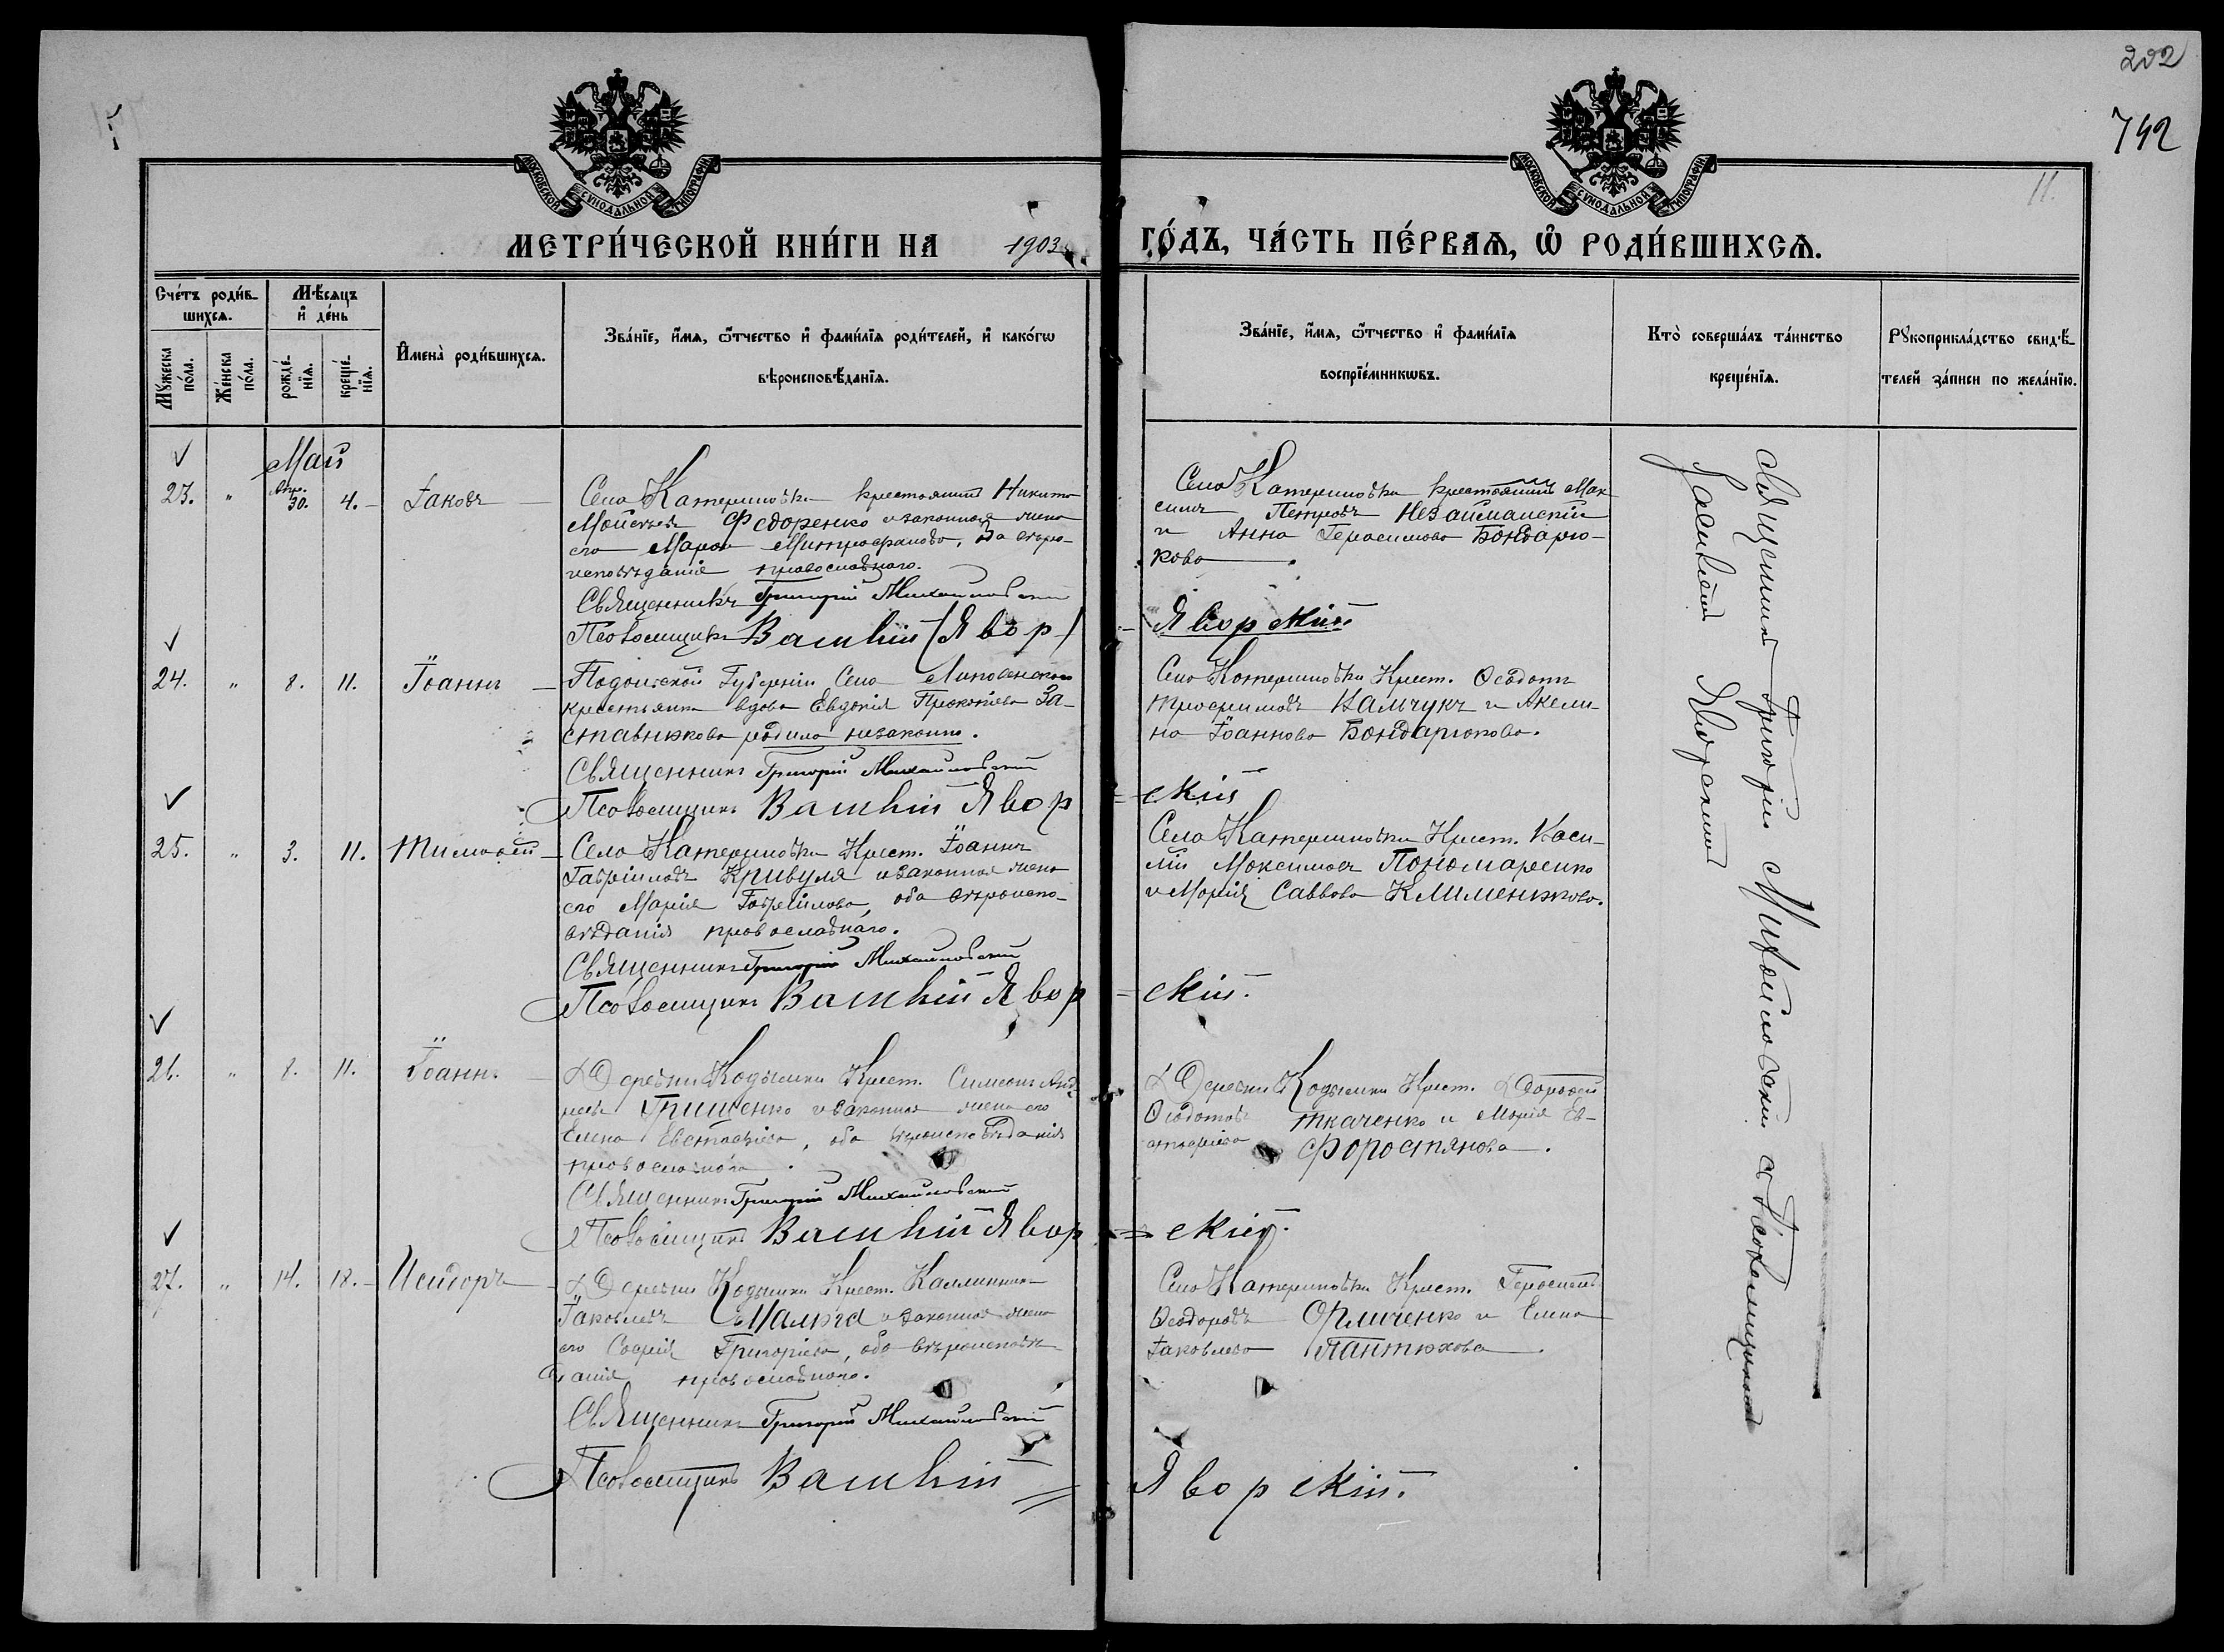 202
742
11.
МОСКОВСКОЙ СѴНОДАЛЬНОЙ ТИПОГРАФІИ
МОСКОВСКОЙ СѴНОДАЛЬНОЙ ТИПОГРАФІИ
МЕТРИ́ЧЕСКОЙ КНИ́ГИ НА 1903 ГО́ДЪ, ЧА́СТЬ ПЕ́РВАѦ, Ѡ҆ РОДИ́ВШИХСѦ.
Сче́тъ роди́в-
шихсѧ.
Мꙋ́жеска по́ла.
Же́нска по́ла.
Мѣ́сѧцъ и҆ де́нь
рожде́-
нїѧ.
креще́-
нїѧ.
И҆мена̀ роди́вшихсѧ.
Зва́нїе, и҆́мѧ, ѻ҆́тчество и҆ фамі́лїѧ роди́телей, и҆ како́гѡ
вѣроисповѣ́данїѧ.
Зва́нїе, и҆́мѧ, ѻ҆́тчество и҆ фамі́лїѧ
воспрїе́мникѡвъ.
Кто̀ соверша́лъ та́инство
креще́нїѧ.
Рꙋкоприкла́дство свидѣ́-
телей за́писи по жела́нїю.
Май
23. " Апр. 30. 4. Іаковъ
Села Катериновки крестьянинъ Никита
Моисеевъ Федоренко и законная жена
его Марѳа Митрофанова, оба вѣро-
исповѣданія православнаго.
Священникъ Григорій Михайловскій
Псаломщикъ Василій Явор
Села Катериновки крестьянинъ Мак
симъ Петровъ Незайманскій
и Анна Герасимова Бондарю-
кова.
Яворскій
24. " 8. 11. Іоаннъ
Подольской Губерніи Села
крестьянка вдова Евдокія Прокопіева За-
ставнюкова родила незаконно.
Священникъ Григорій Михайловскій
Псаломщикъ Василій Явор
Села Катериновки Крест. Ѳеодотъ
Трофимовъ Кальчукъ и Акели-
на Іоаннова Бондарюкова.
скій
25. " 3. 11. Тимоѳей
Села Катериновки Крест. Іоаннъ
Гавріиловъ Кривуля и законная жена
его Марія Гавріилова, оба вѣроиспо-
вѣданія православнаго.
Священникъ Григорій Михайловскій
Псаломщикъ Василій Явор
Села Катериновки Крест. Васи-
лій Максимовъ Пономаренко
и Марія Саввова Клименкова.
скій.
26. " 8. 11. Іоаннъ
Деревни Кодымки Крест. Симеонъ Анд-
реевъ Грищенко и законная жена его
Елена Евстафіева, оба вѣроисповѣданія
православнаго.
Священникъ Григорій Михайловскій
Псаломщикъ Василій Явор
Деревни Кодымки Крест. Дороѳей
Ѳеодотовъ Ткаченко и Марія Ев-
стафіева Форостянова.
скій.
27. " 14. 18. Исидоръ
Деревни Кодымки Крест. Каллиникъ
Іаковлевъ Шалыга и законная жена
его Софія Григоріева, оба вѣроисповѣ-
данія православнаго.
Священникъ Григорій Михайловскій
Псаломщикъ Василій
Села Катериновки Крест. Герасимъ
Ѳеодоровъ Орличенко и Елена
Іаковлева Пантюхова.
Яворскій.
Священникъ Григорій Михайловскій съ Псаломщикомъ
Василіемъ Яворскимъ